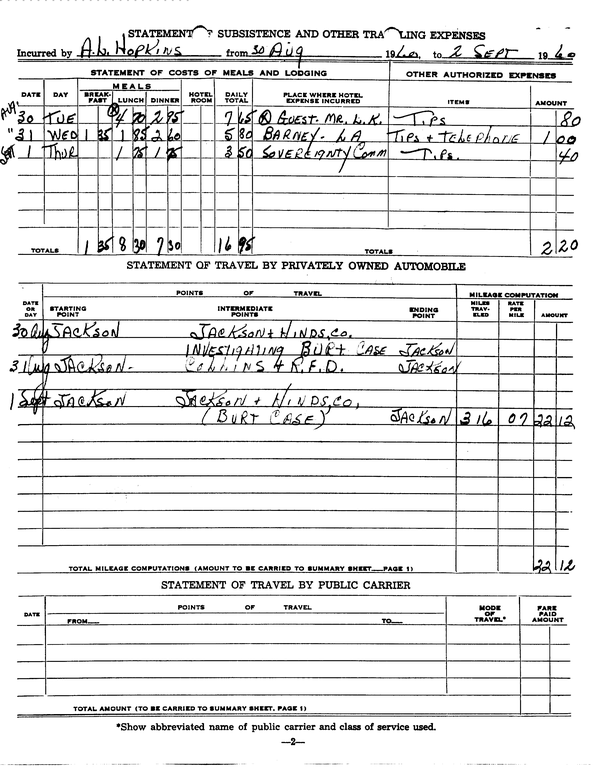 STATEMENT OF SUBSISTENCE AND OTHER TRAVELING EXPENSES
Incurred by A.L. HOPKINS from 30 Aug 1960, to 2 SEPT 1960
STATEMENT OF COSTS OF MEALS AND LODGING OTHER AUTHORIZED EXPENSES
DATE DAY MEALS BREAK-FAST LUNCH DINNER HOTEL ROOM DAILY TOTAL PLACE WHERE HOTEL EXPENSE INCURRED ITEMS AMOUNT
AUG 30 TUE 4 70 2 95 7 65 GUEST- MR. L.K. TIPS 80
" 31 WED 1 35 1 85 2 60 5 80 BARNEY- LA TIPS + TELEPHONE 1 00
SEPT 1 THUR 1 75 1 75 3 50 SOVEREIGNTY COMM TIPS. 40
TOTALS 1 35 8 30 7 30 16 95 TOTALS 2 20
STATEMENT OF TRAVEL BY PRIVATELY OWNED AUTOMOBILE
DATE OR DAY POINTS OF TRAVEL MILEAGE COMPUTATION
STARTING POINT INTERMEDIATE POINTS ENDING POINT MILES TRAV-ELED RATE PER MILE AMOUNT
30 Aug JACKSON JACKSON + HINDS, CO.
INVESTIGATING BURT CASE JACKSON
31 Aug JACKSON- COLLINS + R.F.D. JACKSON
1 Sept JACKSON JACKSON + HINDS, CO,
(BURT CASE) JACKSON 316 07 22 12
TOTAL MILEAGE COMPUTATIONS (AMOUNT TO BE CARRIED TO SUMMARY SHEET PAGE 1) 22 12
STATEMENT OF TRAVEL BY PUBLIC CARRIER
DATE POINTS OF TRAVEL MODE OF TRAVEL* FARE PAID AMOUNT
FROM TO
TOTAL AMOUNT (TO BE CARRIED TO SUMMARY SHEET, PAGE 1)
*Show abbreviated name of public carrier and class of service used.
—2—